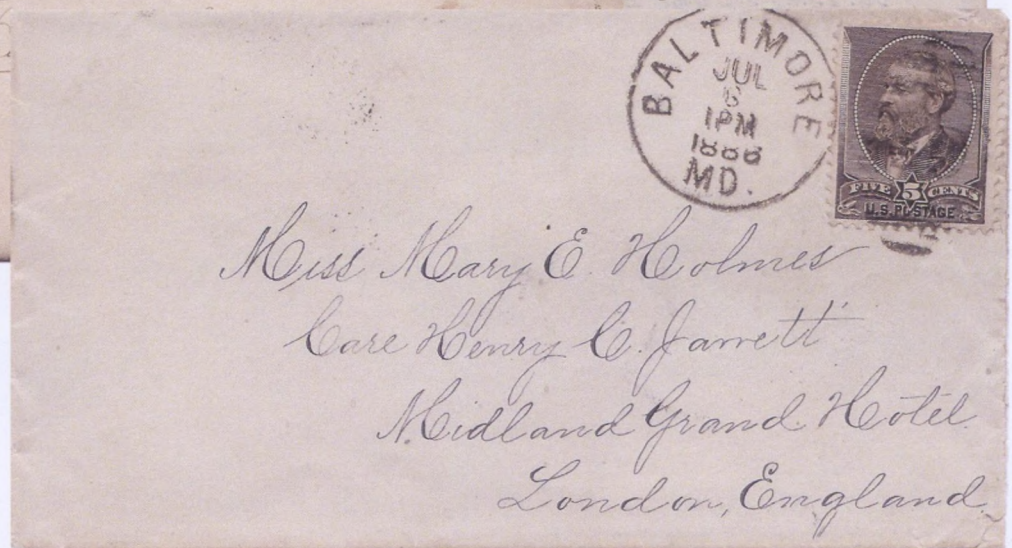 BALTIMORE
JUL
6
1PM
1886
MD.
FIVE 5 CENTS
U.S. POSTAGE
Miss Mary E. Holmes
Care Henry C. Jarrett
Midland Grand Hotel
London, England.